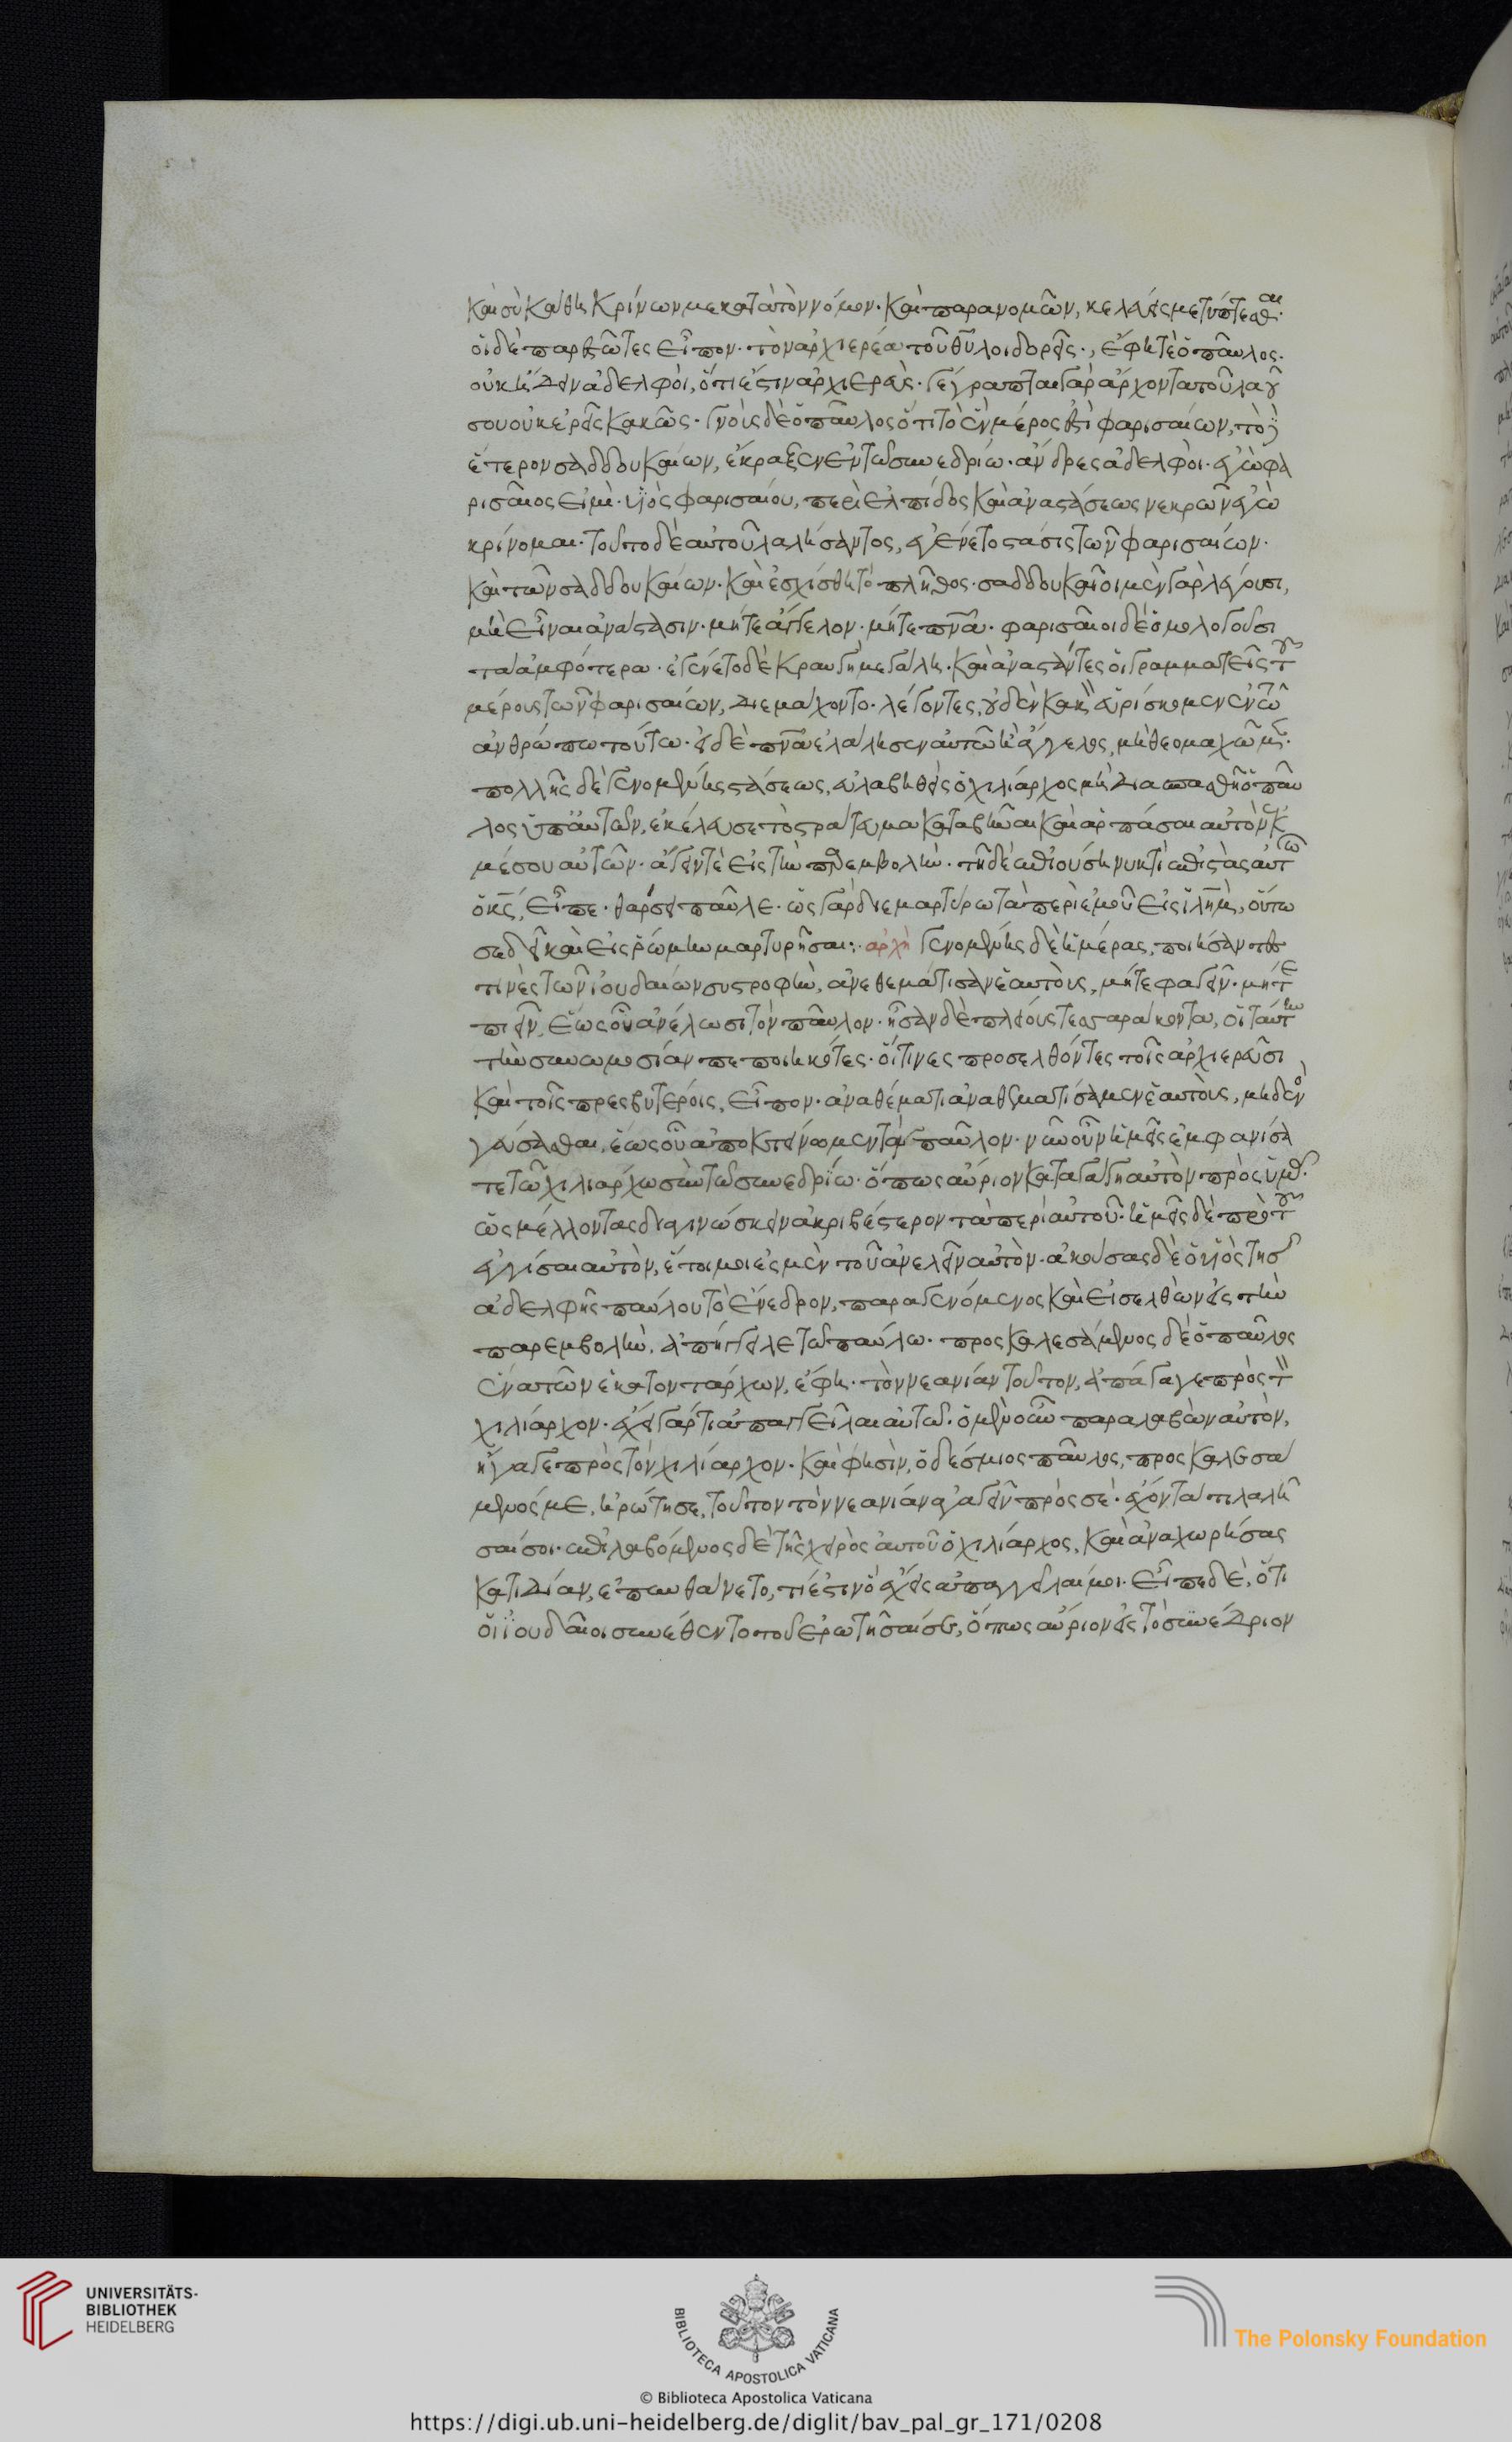 καὶ σὺ κάθη κρίνων με κατὰ τὸν νόμον· καὶ παρανομῶν, κελεύεις με τύπτεσθαι·
ὁι δὲ παρεστῶτες εἶπον· τὸν ἀρχιερέα τοῦ θυ λοιδορεῖς·, ἔφη τὲ ὁ παῦλος·
οὐκ ἤδειν ἀδελφοὶ, ὅτι ἐστιν ἀρχιερεὺς· γέγραπται γὰρ ἄρχοντα τοῦ λαοῦ
σου οὐκ ἐρεῖς κακῶς· γνοὺς δὲ ὁ παῦλος ὅτι τὸ ἓν μέρος ἐστὶ φαρισαίων, τὸ δὲ
ἕτερον σαδδουκαίων, ἔκραξεν ἐν τῶ συνεδρίω· ἄνδρες ἀδελφοὶ· ἐγὼ φα
ρισαῖος εἰμὶ· υἱὸς φαρισαίου, περὶ ἐλπίδος καὶ ἀναστάσεως νεκρῶν ἐγὼ
κρίνομαι· τοῦτο δὲ αὐτοῦ λαλήσαντος, ἐγένετο στάσις τῶν φαρισαίων·
καὶ τῶν σαδδουκαίων· καὶ ἐσχίσθη τὸ πλῆθος· σαδδουκαῖοι μὲν γὰρ λέγουσι,
μὴ εἶναι ἀνάστασιν· μήτε ἄγγελον· μήτε πνα· φαρισαῖοι δὲ ὁμολογοῦσι
τὰ ἀμφότερα· ἐγένετο δὲ κραυγὴ μεγάλη· καὶ ἀναστάντες ὁι γραμματεῖς τοῦ
μέρους τῶν φαρισαίων, διεμάχοντο· λέγοντες, οὐδὲν κακὸν εὑρίσκομεν ἐν τῶ
ἀνθρώπω τούτω· εἰ δὲ πνα ἐλάλησεν αὐτῶ ἢ ἄγγελος, μὴ θεομαχῶμεν·
πολλῆς δὲ γενομένης στάσεως, εὐλαβηθεὶς ὁ χιλίαρχος μὴ διασπασθῆ ὁ παῦ
λος ὑπ αὐτῶν, ἐκέλευσε τὸ στράτευμα καταβῆναι καὶ ἁρπάσαι αὐτὸν ἐκ
μέσου αὐτῶν· ἄγειν τὲ εἰς τὴν παρεμβολὴν· τῆ δὲ ἐπιούση νυκτὶ ἐπιστὰς αὐτῶ
ὁ κς, εἶπε· θάρσει παῦλε· ὡς γὰρ διεμαρτύρω τὰ περὶ ἐμοῦ εἰς ιλημ, οὕτω
σε δεῖ καὶ εἰς ῥώμην μαρτυρῆσαι:· ἀρχὴ γενομένης δὲ ἡμέρας, ποιήσαντες
τινὲς τῶν ἰουδαίων συστροφὴν, ἀνεθεμάτισαν ἑαυτοὺς, μήτε φαγεῖν· μήτε
πιεῖν, ἕως οὗ ἀνέλωσι τὸν παῦλον· ἦσαν δὲ πλείους τεσσαράκοντα, οἱ ταύτην
τὴν συνωμοσίαν πεποιηκότες· ὅιτινες προσελθόντες τοῖς ἀρχιερεῦσι
καὶ τοῖς πρεσβυτέροις, εἶπον· ἀναθέματι ἀναθεματίσαμεν ἑαυτοὺς, μηδενὸς
γεύσασθαι, ἕως οὗ ἀποκτείνωμεν τὸν παῦλον· νῦν οὖν ὑμεῖς ἐμφανίσα
τε τῶ χιλιάρχω σὺν τῶ συνεδρίω· ὅπως αὔριον καταγάγη αὐτὸν πρὸς ὑμᾶς·
ὡς μέλλοντας διαγινώσκειν ἀκριβέστερον τὰ περὶ αὐτοῦ· ἡμεῖς δὲ πρὸ τοῦ
ἐγγίσαι αὐτὸν, ἕτοιμοι ἐσμὲν τοῦ ἀνελεῖν αὐτὸν· ἀκούσας δὲ ὁ υἱὸς τῆς
ἀδελφῆς παύλου τὸ ἔνεδρον, παραγενόμενος καὶ εἰσελθὼν εἰς τὴν
παρεμβολὴν, ἀπήγγειλε τῶ παύλω· προσκαλεσάμενος δὲ ὁ παῦλος
ἕνα τῶν ἑκατοντάρχων, ἔφη· τὸν νεανίαν τοῦτον, ἀπάγαγε πρὸς τὸν
χιλίαρχον· ἔχει γάρ τι ἀπαγγεῖλαι αὐτῶ· ὁ μὲν οὖν παραλαβὼν αὐτὸν,
ἤγαγε πρὸς τὸν χιλίαρχον· καὶ φησὶν, ὁ δέσμιος παῦλος, προσκαλεσά
μενός με, ἠρώτησε, τοῦτον τὸν νεανίαν ἀγαγεῖν πρὸς σὲ· ἔχοντά τι λαλῆ
σαί σοι· ἐπιλαβόμενος δὲ τῆς χειρὸς αὐτοῦ ὁ χιλίαρχος, καὶ ἀναχωρήσας
κατιδίαν, ἐπυνθάνετο, τί ἐστιν ὃ ἔχεις ἀπαγγεῖλαί μοι· εἶπε δὲ, ὅτι
ὁι ἰουδαῖοι συνέθεντο τοῦ ἐρωτῆσαί σε, ὅπως αὔριον εἰς τὸ συνέδριον
UNIVERSITÄTS-
BIBLIOTHEK
HEIDELBERG
BIBLIOTECA APOSTOLICA VATICANA
The Polonsky Foundation
© Biblioteca Apostolica Vaticana
https://digi.ub.uni-heidelberg.de/diglit/bav_pal_gr_171/0208